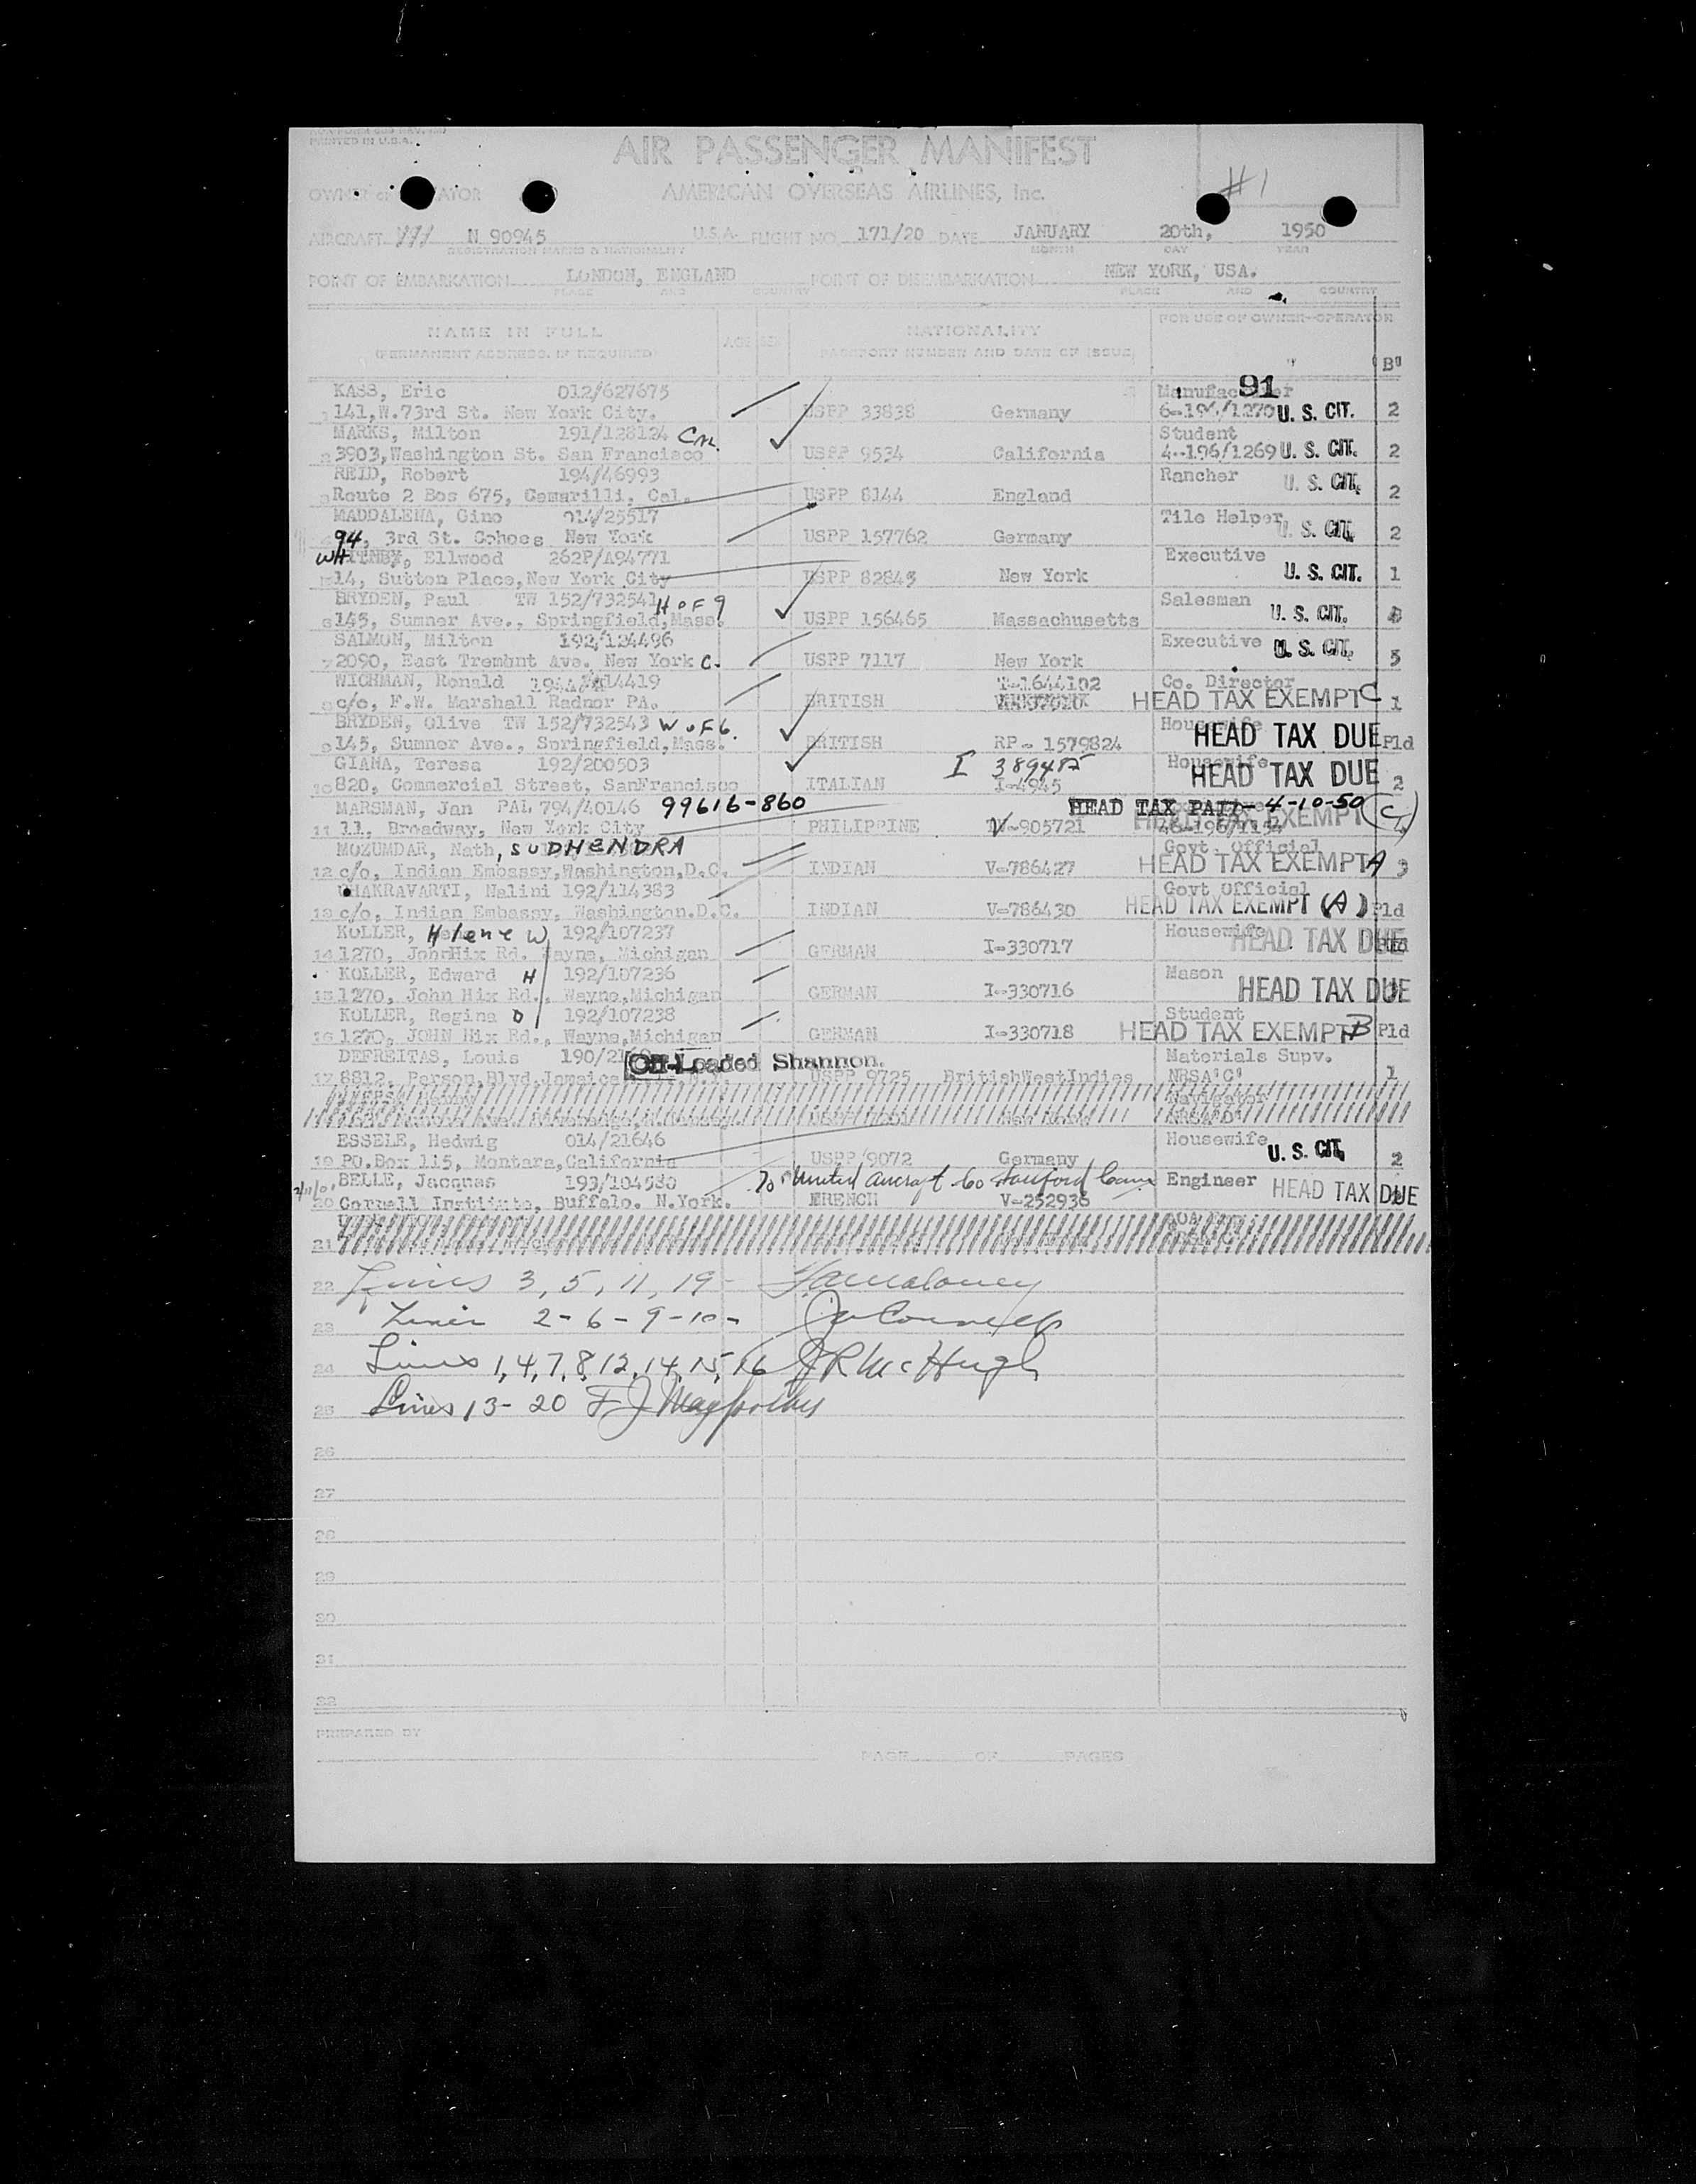 PRINTED IN U.S.A.
AIR PASSENGER MANIFEST
#1
AMERICAN OVERSEAS AIRLINES, Inc.
AIRCRAFT N 90945 U.S.A. FLIGHT NO. 171/20 DATE JANUARY 20th, 1950
REGISTRATION MARKS & NATIONALITY MONTH DAY YEAR
POINT OF EMBARKATION LONDON, ENGLAND POINT OF DISEMBARKATION NEW YORK, USA.
PLACE AND COUNTRY PLACE AND COUNTRY
NAME IN FULL AGE SEX NATIONALITY FOR USE OF OWNER-OPERATOR
(PERMANENT ADDRESS, IF REQUIRED) PASSPORT NUMBER AND DATE OF ISSUE
91
KASS, Eric 012/627675 Manufacturer
1 141,W.73rd St. New York City. USPP 33838 Germany U. S. CIT. 2
MARKS, Milton 191/128124 Student
2 3903,Washington St. San Francisco USPP 9534 California 4--196/1269 U. S. CIT. 2
REID, Robert 194/46993 Rancher
3 Route 2 Bos 675, Camarilli, Cal. USPP 8144 England U. S. CIT. 2
MADDALENA, Gino 014/25517 Tile Helper
94, 3rd St. Cohoes New York USPP 157762 Germany U. S. CIT. 2
Ellwood 262P/A94771 Executive
14, Sutton Place,New York City USPP 82843 New York U. S. CIT. 1
BRYDEN, Paul TW 152/732541 H OF 9 Salesman
6 145, Sumner Ave., Springfield,Mass. USPP 156465 Massachusetts U. S. CIT.
SALMON, Milton 192/124496 Executive
7 2090, East Tremhnt Ave. New York C. USPP 7117 New York U. S. CIT. 5
WICHMAN, Ronald T-1644102 Co. Director
8 c/o, F.W. Marshall Radnor PA. BRITISH HEAD TAX EXEMPT C 1
BRYDEN, Olive TW 152/732543 W OF 6. Housewife
9 145, Sumner Ave., Springfield,Mass. BRITISH RP- 1579824 HEAD TAX DUE Pld
GIANA, Teresa 192/200503 I 389485 Housewife
10 820, Commercial Street, SanFrancisco ITALIAN I-4945 HEAD TAX DUE 2
MARSMAN, Jan PAL 794/40146 99616-860 HEAD TAX PAID - 4-10-50
11 11, Broadway, New York City PHILIPPINE V-905721 46-196/1154 HEAD TAX EXEMPT
MOZUMDAR, Nath, SUDHENDRA Govt. Official
12 c/o, Indian Embassy,Washington,D.C. INDIAN V-786427 HEAD TAX EXEMPT A 3
CHAKRAVARTI, Nalini 192/114383 Govt Official
13 c/o, Indian Embassy, Washington.D.C. INDIAN V-786430 HEAD TAX EXEMPT (A) Pld
KOLLER, Helene W 192/107237 Housewife
14 1270, JohnHix Rd. Wayne, Michigan GERMAN I-330717 HEAD TAX DUE
KOLLER, Edward H 192/107236 Mason
15 1270, John Hix Rd., Wayne,Michigan GERMAN I-330716 HEAD TAX DUE
KOLLER, Regina D 192/107238 Student
16 1270, JOHN Hix Rd., Wayne,Michigan GERMAN I-330718 HEAD TAX EXEMPT B Pld
DEFREITAS, Louis Off-Loaded Shannon. Materials Supv.
17 8812, Parson,Blvd,Jamaica USPP 9725 BritishWestIndies NRSA'C' 1
Navigator
ESSELE, Hedwig 014/21646 Housewife
19 PO.Box 115, Montara,California USPP 9072 Germany U. S. CIT. 2
BELLE, Jacques 193/104530 To United Aircraft Co Engineer
20 Cornell Institute, Buffalo. N.York. FRENCH V-252936 HEAD TAX DUE
21
22 Lines 3, 5, 11, 19 -
23 Lines 2-6-9-10-
24 Lines 1,4,7,8,12,14,15,16 J R McHugh
25 Lines 13-20
26
27
28
29
30
31
32
PREPARED BY
PAGE OF PAGES